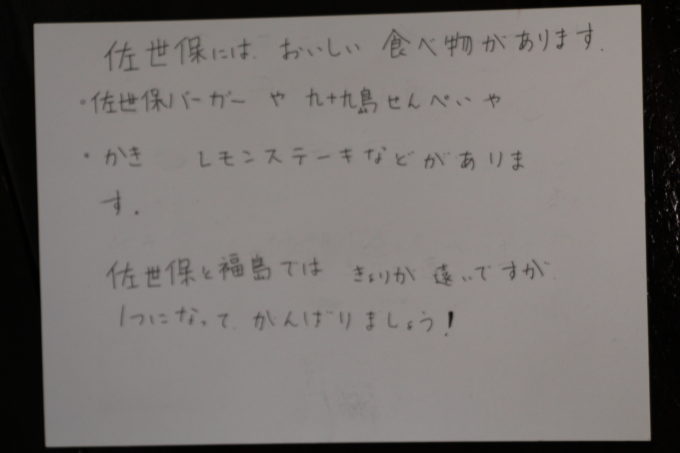 佐世保には、おいしい 食べ物があります.
・佐世保バーガー や 九十九島せんぺい や
・かき レモンステーキなどがありま
す.
佐世保と福島では きょりが 遠いですが
1つになって がんばりましょう!